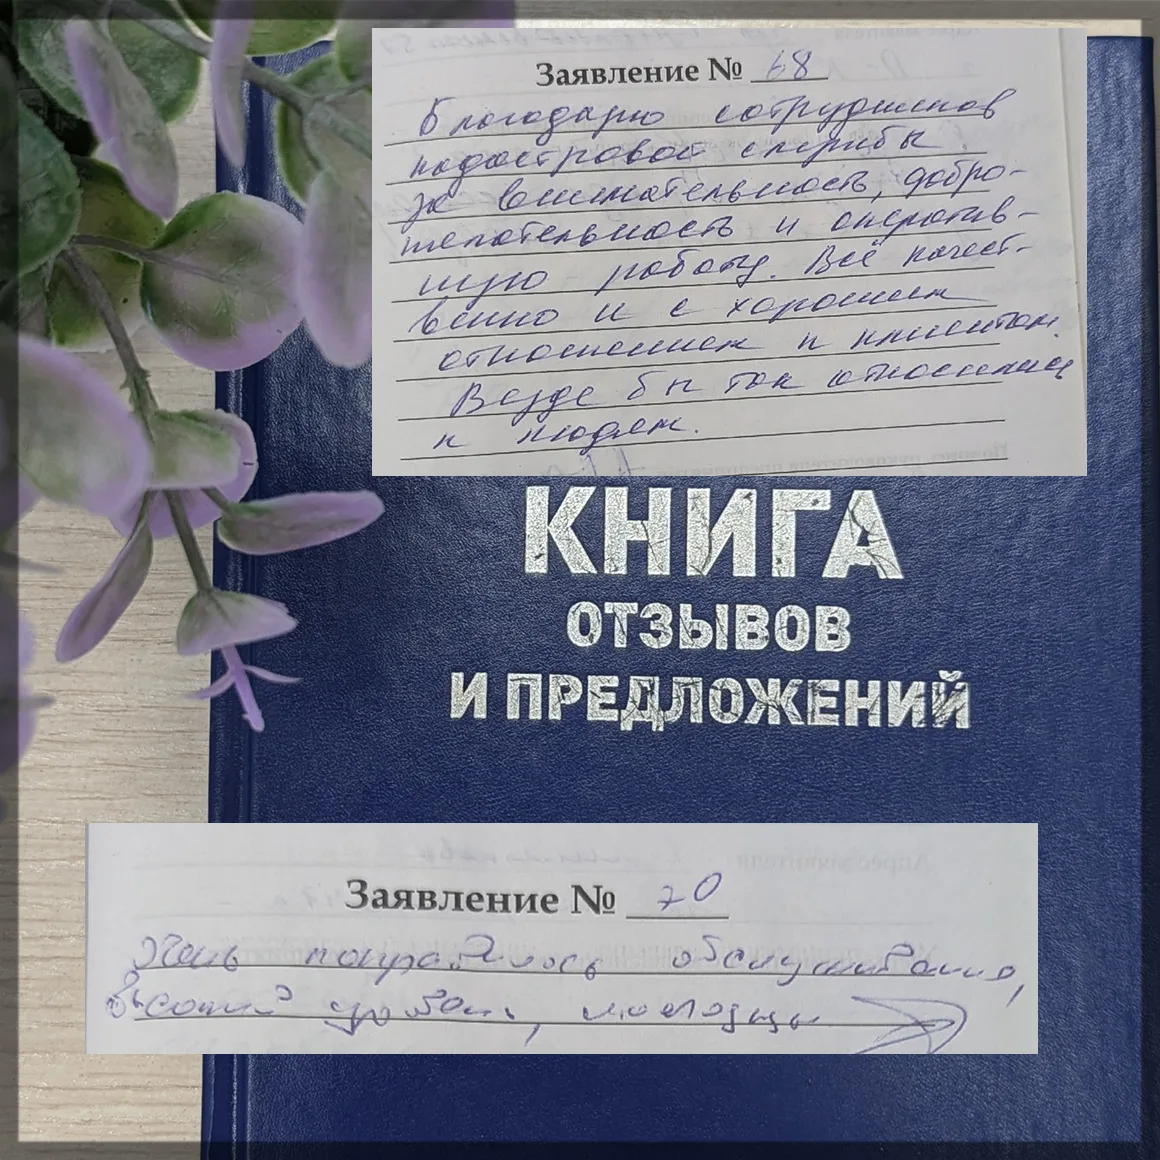 Заявление № 68
Благодарю сотрудников
кадастровой службы
за внимательность, добро-
желательность и оператив-
ную работу. Всё качест-
венно и с хорошим
отношением к клиентам.
Везде бы так относились
к людям.
КНИГА
ОТЗЫВОВ
И ПРЕДЛОЖЕНИЙ
Заявление № 70
Очень понравилось обслуживание,
высокий уровень, молодцы